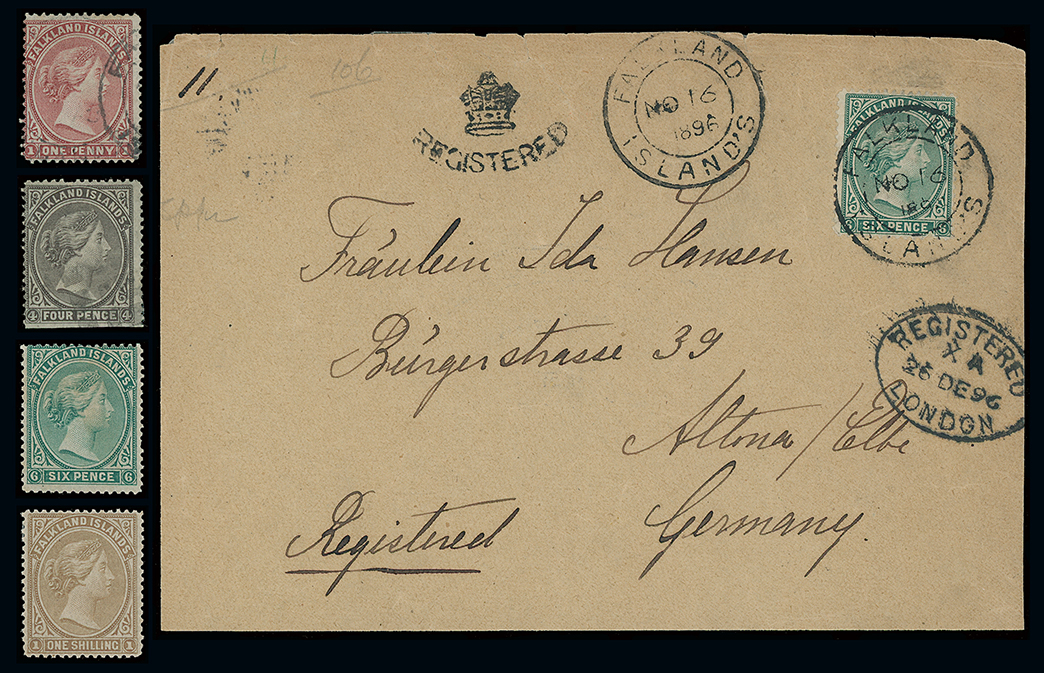 FALKLAND ISLANDS
1 ONE PENNY 1
FALKLAND ISLANDS
4 FOUR PENCE 4
FALKLAND ISLANDS
6 SIX PENCE 6
FALKLAND ISLANDS
1 ONE SHILLING 1
11
11
106
REGISTERED
FALKLAND
NO 16
1896
ISLAND'S
FALKLAND ISLANDS
SIX PENCE 6
FALKLAND
NO 16
189
ISLAND'S
REGISTERED
X A
26 DE 96
LONDON
Fräulein Ida Hansen
Bürgerstrasse 39
Altona/Elbe
Germany.
Registered